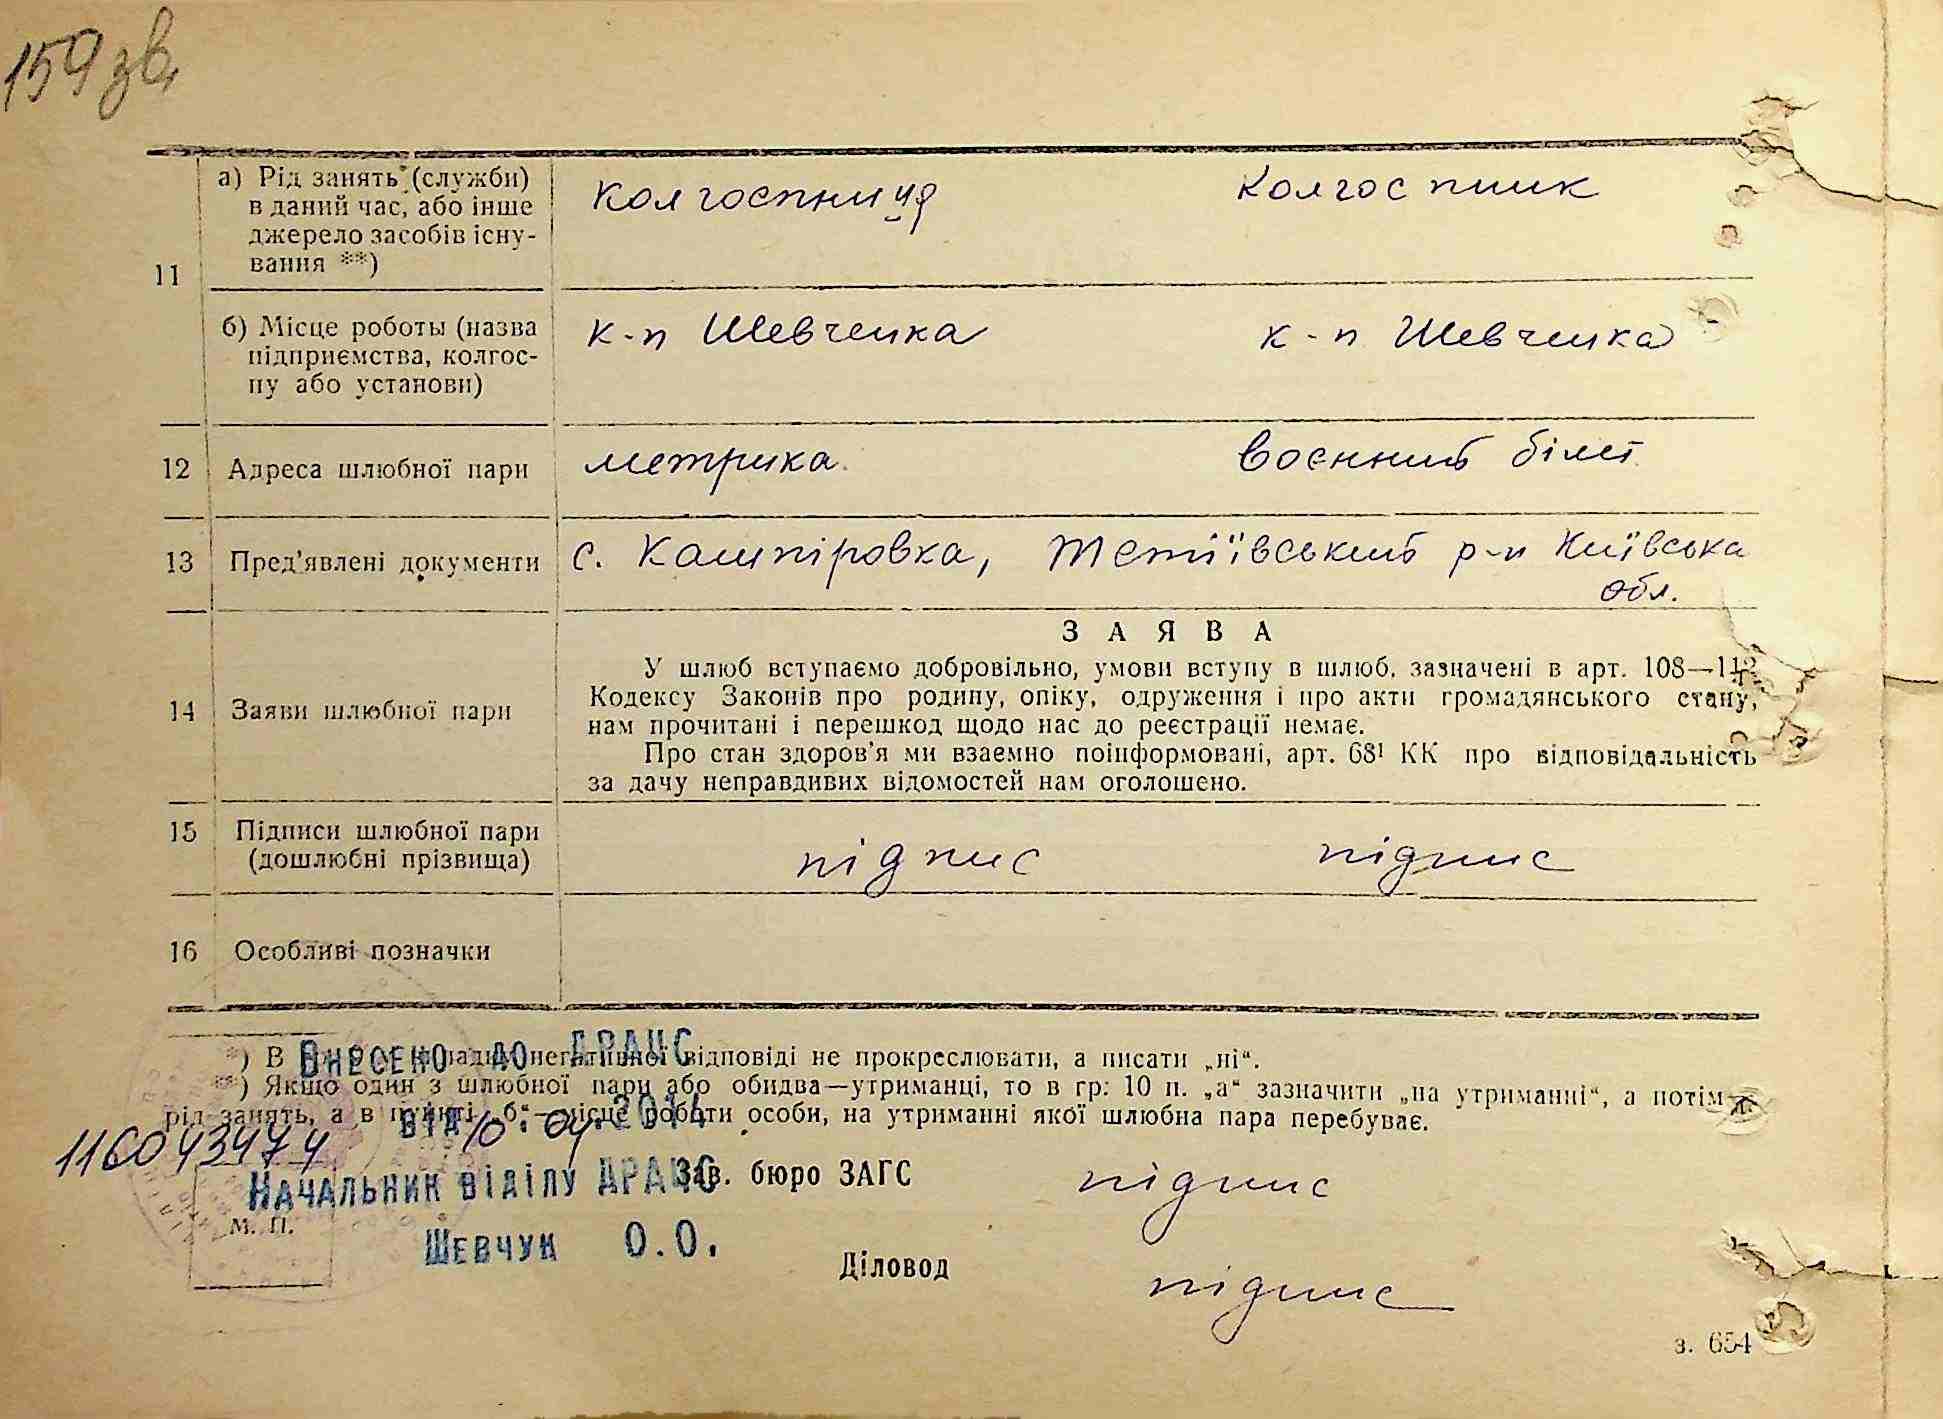 159 зв.
11
а) Рід занять (служби)
в даний час, або інше
джерело засобів існу-
вання **)
колгоспниця
колгоспник
б) Місце роботи (назва
підприємства, колгос-
пу або установи)
к-п Шевченка
к-п Шевченка
12 Адреса шлюбної пари
метрика
воєнний білет
13 Пред'явлені документи
с. Кашпіровка, Тетіївський р-н Київська
обл.
З А Я В А
14 Заяви шлюбної пари
У шлюб вступаємо добровільно, умови вступу в шлюб, зазначені в арт. 108—112
Кодексу Законів про родину, опіку, одруження і про акти громадянського стану,
нам прочитані і перешкод щодо нас до реєстрації немає.
Про стан здоров'я ми взаємно поінформовані, арт. 68¹ КК про відповідальність
за дачу неправдивих відомостей нам оголошено.
15 Підписи шлюбної пари
(дошлюбні прізвища)
підпис
підпис
16 Особливі позначки
*) В негативної відповіді не прокреслювати, а писати „ні“.
Внесено до ДРАЦС
**) Якщо один з шлюбної пари або обидва—утриманці, то в гр: 10 п. „а“ зазначити „на утриманні“, а потім
рід занять, а в пункті „б“—місце роботи особи, на утриманні якої шлюбна пара перебуває.
від 10.04.2014
116043474
Зав. бюро ЗАГС підпис
Начальник відділу ДРАЦС
М. П.
Шевчук О.О.
Діловод підпис
з. 654